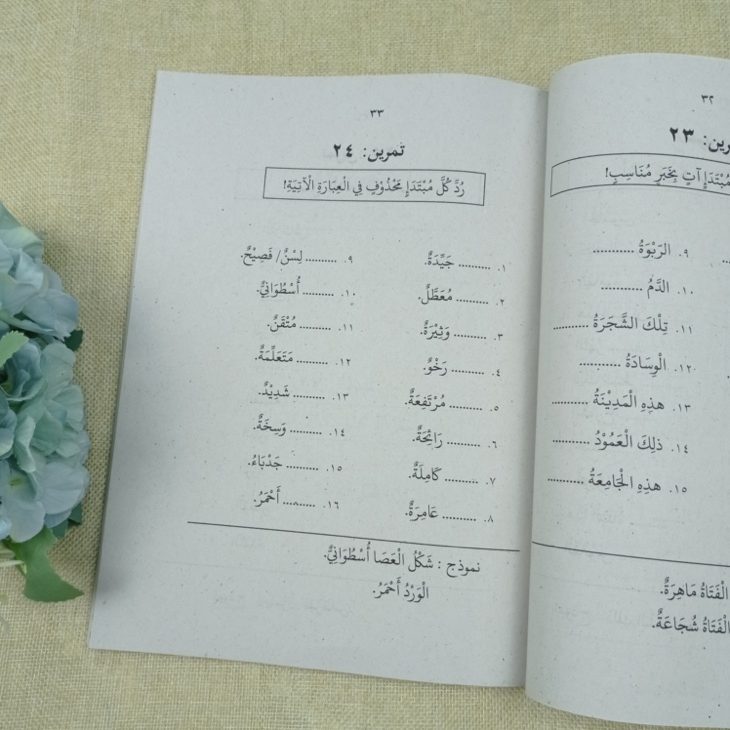 ٣٢
رين: ٢٣
مُبْتَدَإٍ آتٍ بِخَبَرٍ مُنَاسِبٍ!
٩. الرَبْوَةُ ...........
١٠. الدَّمُ ...........
١١. تِلْكَ الشَّجَرَةُ ..........
١٢. الْوِسَادَةُ ...........
١٣. هذِهِ الْمَدِيْنَةُ ..........
١٤. ذلِكَ الْعَمُوْدُ ..........
١٥. هذِهِ الْجَامِعَةُ ..........
الْفَتَاةُ مَاهِرَةٌ.
الْفَتَاةُ شُجَاعَةٌ.
٣٣
تمرين: ٢٤
رُدَّ كُلَّ مُبْتَدَإٍ مَحْذُوْفٍ فِي الْعِبَارَةِ الْآتِيَةِ!
١. .......... جَيِّدَةٌ.
٢. .......... مُعَطَّلٌ.
٣. .......... وَثِيْرَةٌ.
٤. .......... رَخْوٌ.
٥. .......... مُرْتَفِعَةٌ.
٦. .......... رَائِحَةٌ.
٧. .......... كَامِلَةٌ.
٨. .......... عَامِرَةٌ.
٩. .......... لِسْنٌ/ فَصِيْحٌ.
١٠. .......... أُسْطُوَانِيٌّ.
١١. .......... مُتْقَنٌ.
١٢. .......... مَتَعَلِّمَةٌ.
١٣. .......... شَدِيْدٌ.
١٤. .......... وَسِخَةٌ.
١٥. .......... جَدْبَاءُ.
١٦. .......... أَحْمَرُ.
نموذج : شَكْلُ الْعَصَا أُسْطُوَانِيٌّ.
الْوَرْدُ أَحْمَرُ.